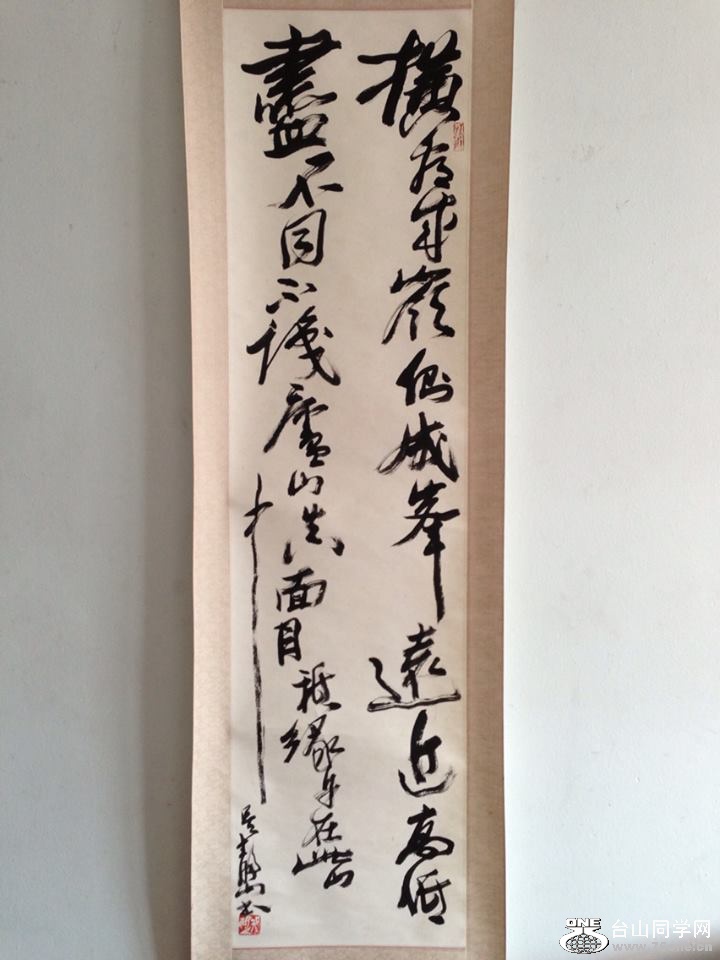 橫看成嶺側成峯遠近高低
盡不同不識廬山真面目祗緣身在此山
中
ONE
台山同学网